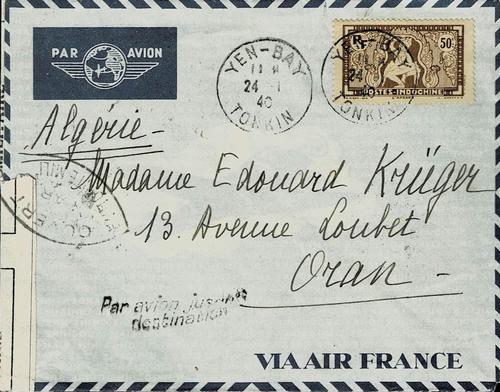 PAR AVION
YEN-BAY
24 -1
40
TONKIN
YEN-BAY
24
TONKIN
50
POSTES-INDOCHINE
Algérie-
Madame Edouard Krüger
13. Avenue Loubet
Oran-
OUVERT
Par avion jusqu'à
destination
VIA AIR FRANCE